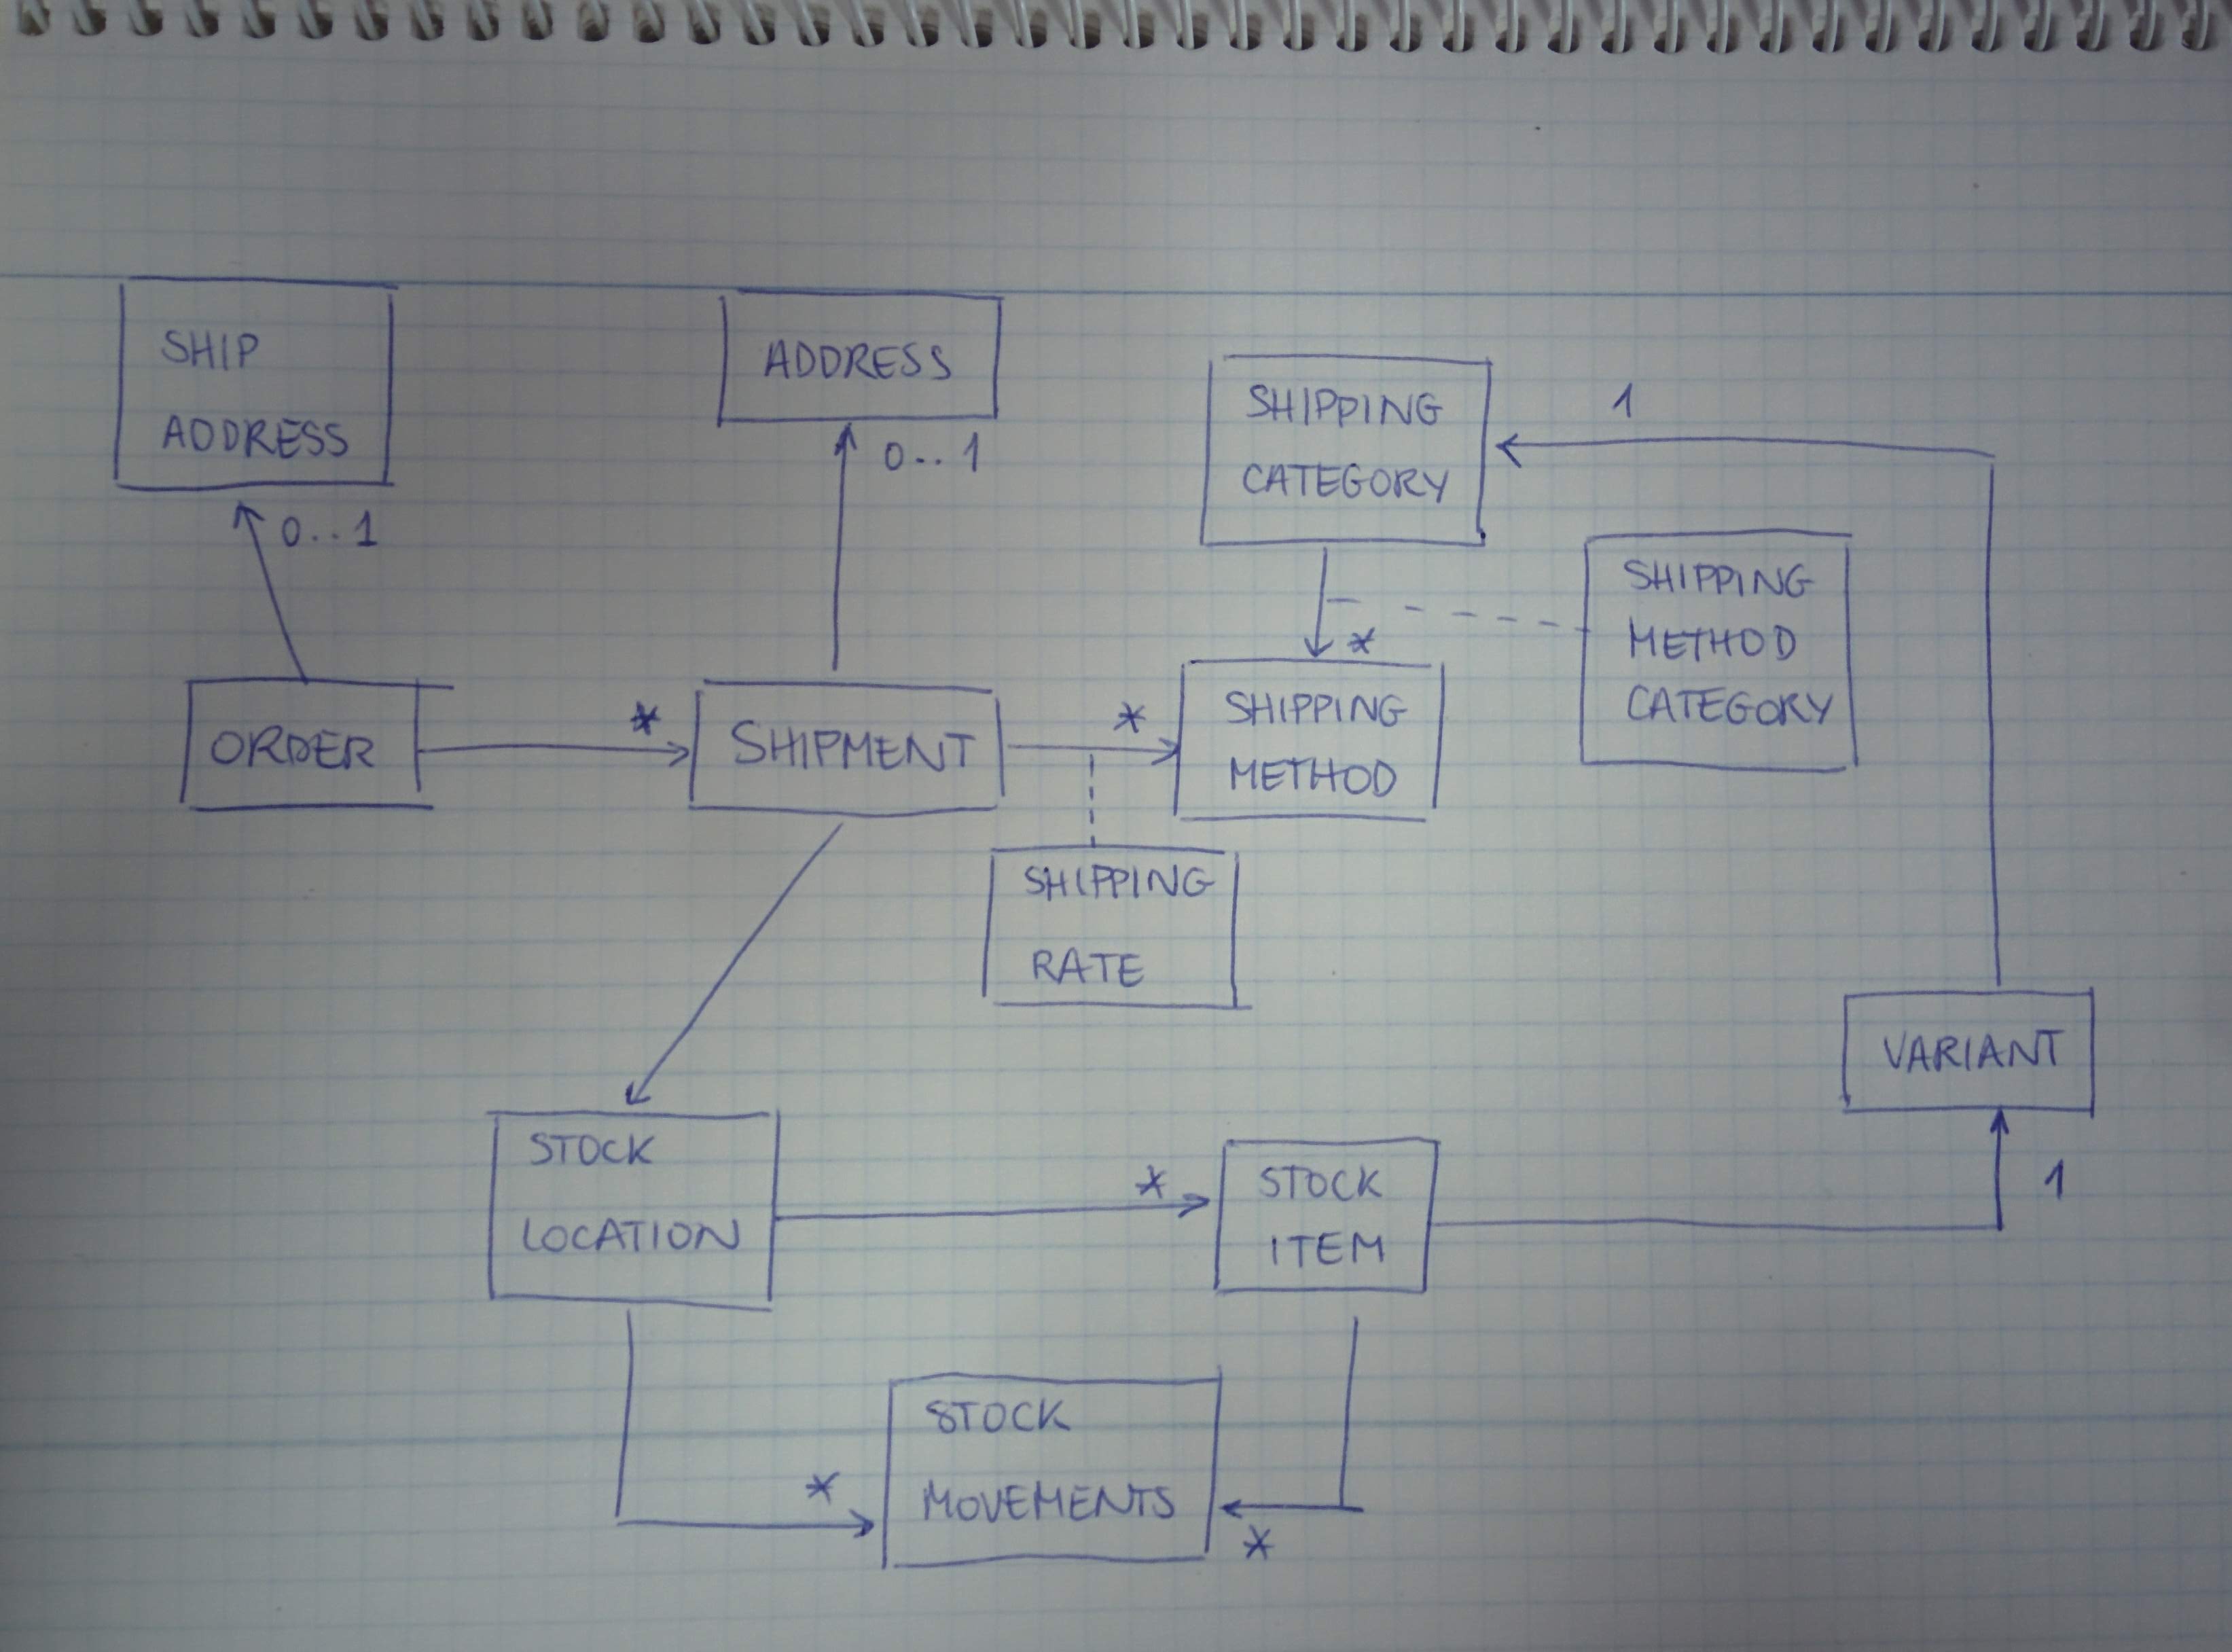 SHIP
ADDRESS
0..1
ADDRESS
0..1
SHIPPING
CATEGORY
1
SHIPPING
METHOD
CATEGORY
*
ORDER
*
SHIPMENT
*
SHIPPING
METHOD
SHIPPING
RATE
VARIANT
1
STOCK
LOCATION
*
STOCK
ITEM
*
STOCK
MOVEMENTS
*